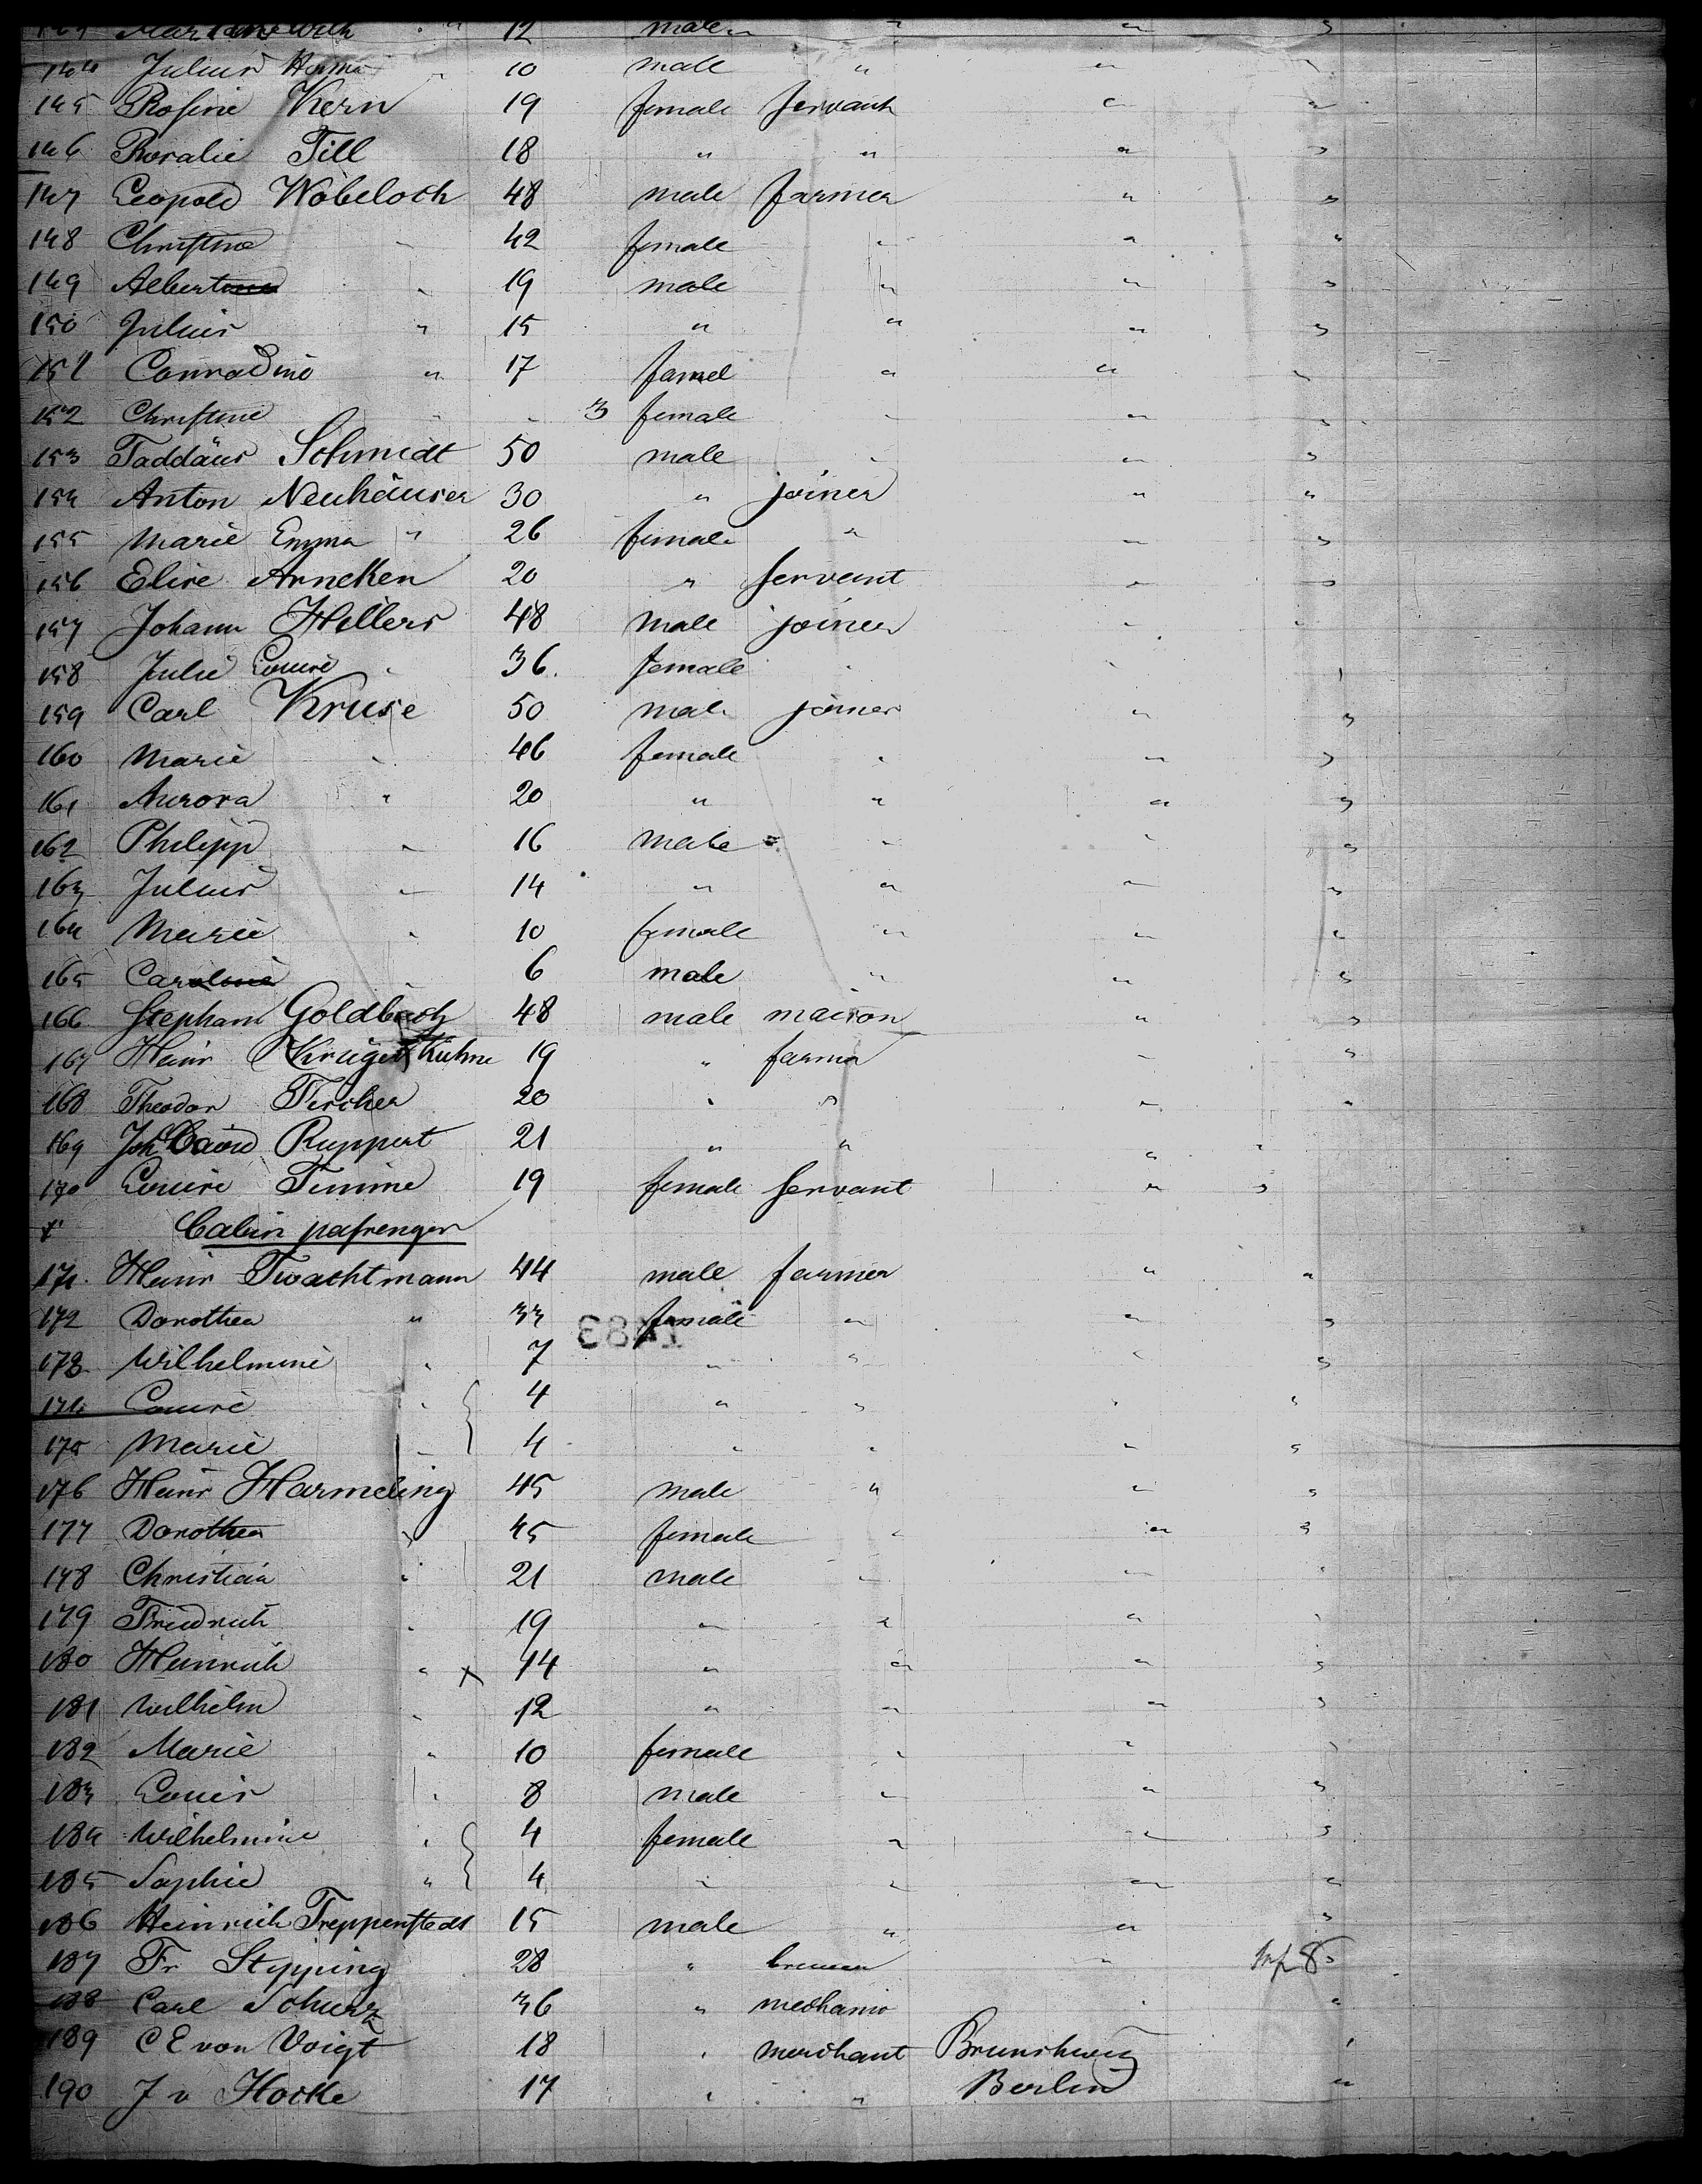 12 male " " "
144 Julius " 10 male " " "
145 Rosine Kern 19 female servant " "
146 Rosalie Till 18 " " " "
147 Leopold Wobeloch 48 male farmer " "
148 Christine " 42 female " " "
149 Albert " 19 male " " "
150 Julius " 15 " " " "
151 Conradine " 17 famel " " "
152 Christine " " 3 female " " "
153 Taddäus Schmidt 50 male " " "
154 Anton Neuhäuser 30 " joiner " "
155 Marie Emma " 26 female " " "
156 Elise Arneken 20 " servant " "
157 Johann Hillers 48 male joiner " "
158 Julie Louise " 36. female " " "
159 Carl Kruse 50 male joiner " "
160 Marie " 46 female " " "
161 Aurora " 20 " " " "
162 Philipp " 16 male " " "
163 Julius " 14 " " " "
164 Marie " 10 female " " "
165 Carl " 6 male " " "
166 Stephann Goldbach 48 male maison " "
167 Heinr Kruger Kuhne 19 " farmer " "
168 Theodor Fircher 20 " " " "
169 Joh Ruppert 21 " " " "
170 Louise Timme 19 female servant " "
Cabin passenger
171. Heinr Twachtmann 44 male farmer " "
172 Dorothea " 33 female " " "
173 Wilhelmine " 7 " " " "
174 Louise " 4 " " " "
175 Marie " 4 " " " "
176 Heinr Harmeling 45 male " " "
177 Dorothea " 45 female " " "
178 Christian " 21 male " " "
179 Friedrich " 19 " " " "
180 Heinrich " x 14 " " " "
181 Wilhelm " 12 " " " "
182 Marie " 10 female " " "
183 Louis " 8 male " " "
184 Wilhelmine " 4 female " " "
185 Sophie " 4 " " " "
186 Heinrich Treppenstedt 15 male " " "
187 Fr Stypping 28 " " "
188 Carl Schurz 36 " mechanic " "
189 C E von Voigt 18 " merchant Brunshweig "
190 J v Hocke 17 " " Berlin "